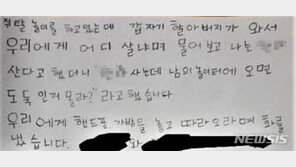 쥐탈 놀이를 하고있는데 갑자기 할아버지가 와서
우리에게 어디 살냐며 물어보고 나는
산다고 했더니 사는데 남의놀이터에 오면
도둑인거 몰라?" 라고했습니다
우리에게 핸드폰, 가방을 놓고 따라오라며 화를
냈습니다. 와
NEWSIS